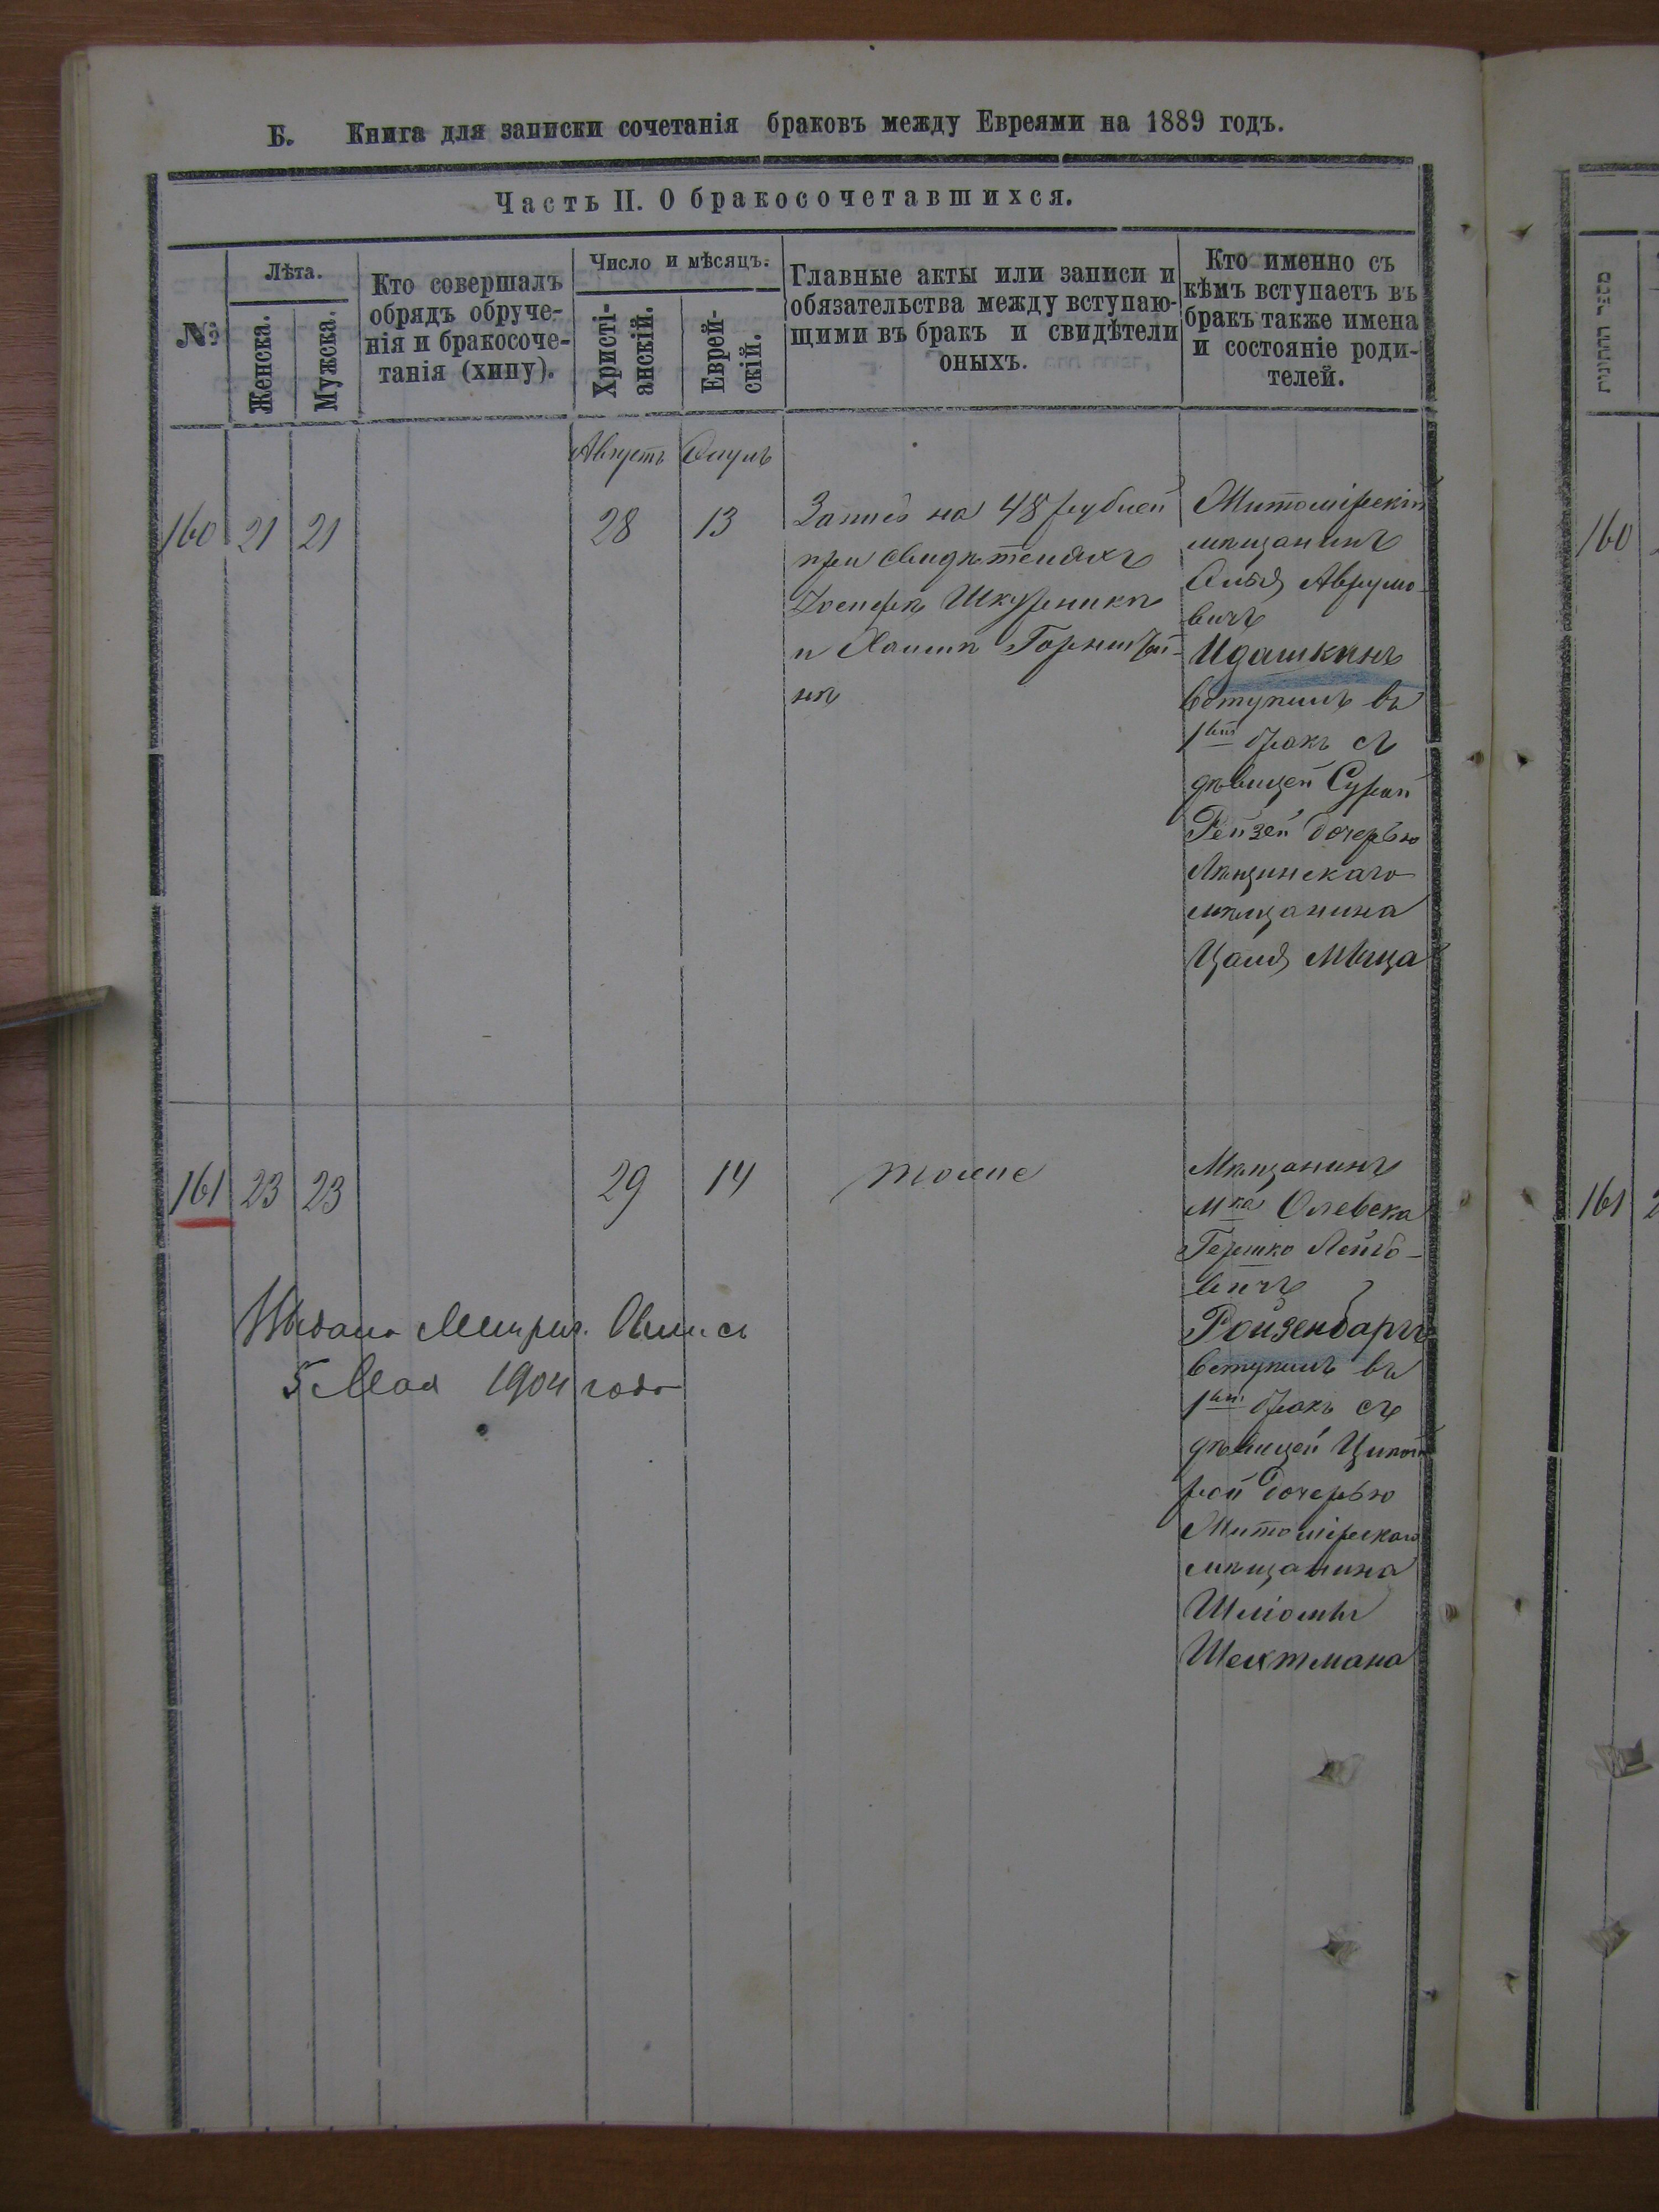 Б. Книга для записки сочетанія браковъ между Евреями на 1889 годъ.
Часть II. О бракосочетавшихся.
№
Лѣта.
Женска.
Мужска.
Кто совершалъ
обрядъ обруче-
нія и бракосоче-
танія (хипу).
Число и мѣсяцъ.
Христі-
анскій.
Еврей-
скій.
Главные акты или записи и
обязательства между вступаю-
щими въ бракъ и свидѣтели
оныхъ.
Кто именно съ
кѣмъ вступаетъ въ
бракъ также имена
и состояніе роди-
телей.
Августъ Элулъ
160 21 21 28 13
Запись на 48 рублей
при свидѣтеляхъ
Іосифѣ Шкурникѣ
и Хаимѣ Горнштей-
нѣ
Житомірскій
мѣщанинъ
Элья Аврумо-
вичъ
Идашкинъ
вступилъ въ
1вый бракъ съ
дѣвицей Сурой
Рейзей дочерью
мѣщанина
161 23 23 29 14
тоже
Мѣщанинъ
мка Олевска
Гершко Лейбо-
вичъ
Ройзенбаргъ
вступилъ въ
1вый бракъ съ
дѣвицей Ципой-
рой дочерью
Житомірскаго
мѣщанина
Шліомы
Шехтмана
Выдана Метрич. Выпись
5 Мая 1904 года
160
161